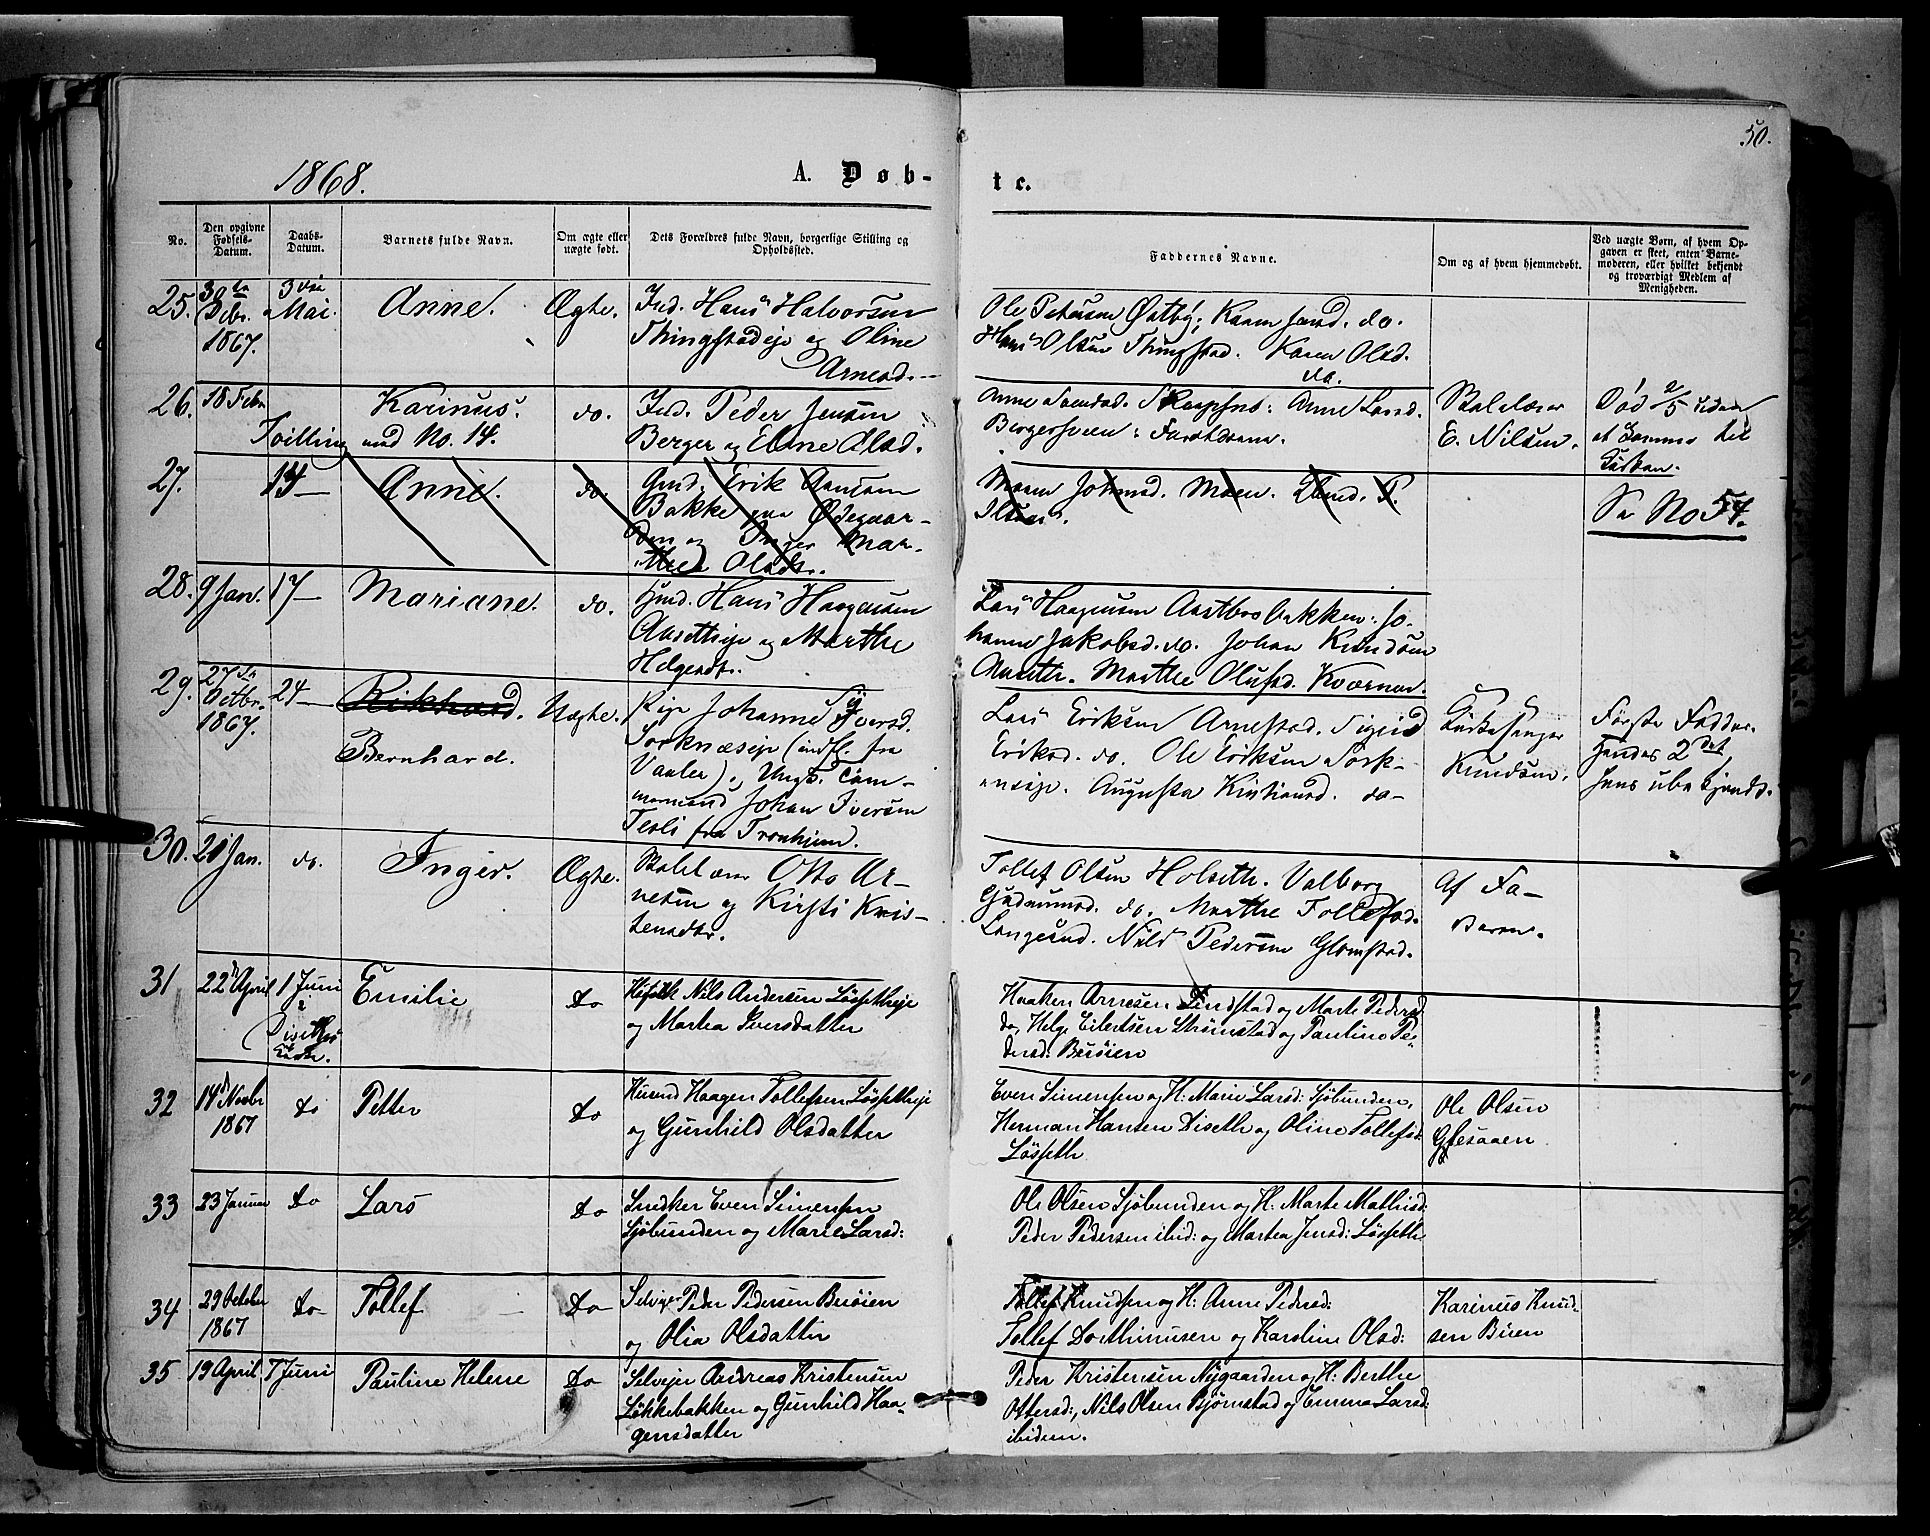 50.
1868.
A. Døb-
te.
No.
Den opgivne Fødsels-Datum.
Daabs-Datum.
Barnets fulde Navn.
Om ægte eller uægte født.
Dets Forældres fulde Navn, borgerlige Stilling og Opholdssted.
Faddernes Navne.
Om og af hvem hjemmedøbt.
Ved uægte Børn, af hvem Op-
gaven er skeet, enten Barne-
moderen, eller hvilket bekjendt
og troværdigt Medlem af
Menigheden.
25. 30te Decbr. 1867. 3die Mai. Anne. Ægte.
Ind. Hans Halvorsen
Thingstadeje og Oline
Arnesd.
Ole Petersen Østby, Karen do.
Hans Olsen Thingstad. Karen Olsd.
do.
26. 18 Febr. Karinus. do.
Tvilling med No. 14.
Ind. Peder Jensen
Berger og Eline Olsd.
Anne Anne Larsd.
Bergersveen
Skolelærer
E. Nilsen.
Død 2/5 siden
Kirken.
27. 17 — Anne. do.
Gmd. Erik
Bakke paa Ødegaar-
den og Inger Mar-
thea Olsdr.
Maren Johnsd. Moen.
Se No 54.
28. 9 Jan. 17 — Mariane. do.
Hmd. Hans Haagensen
og Marthe
Helgesdtr.
Lars Haagensen bakken. Jo-
hanne Jakobsd. do. Johan Knudsen
Marthe Olufsd. Kværnes.
29. 27de Octbr. 1867. 24 — Rikhard. Uægte.
Bernhard.
Pige Johanne Iversd.
Sorknæseje (indfl. fra
Vaaler) og Ungk. Tøm-
mermand Johan Iversen
Tesli fra Tronhjem.
Lars Eriksen Arnestad. Sigrid
Eriksd. do. Ole Eriksen Sork-
næseje. Augusta Kristiansd. do-
Kirkesanger
Knudsen.
Første Fadder.
Hendes 2det
hans ubekjendt.
30. 21 Jan. do. Inger. Ægte.
Skolelærer Otto Ar-
nesen og Kirsti Kris-
tensdtr.
Tollef Olsen Holseth. Valborg
Gudmunsd. do. Marthe Tollefsd.
Langesund. Nils Pedersen Glomstad.
Af Fa-
deren.
31 22 April 1 Juni i Diseths Kirke. Emilie do
Nils Andersen Løssetheje
og Martea Iversdatter
Haaken Arnesen Lindstad og Marte Pedersd
do, Helge Eilertsen Strømstad og Pauline Pe-
dersd: Buøien
32 14 Novbr 1867 do Petter do
Husmd Haagen Tollefsen Løssetheje
og Gunhild Olsdatter
Even Simensen og H: Marie Larsd: Sjøbunden,
Herman Hansen Diseth og Oline Tollefsd:
Løsseth
Ole Olsen
Glesaaen
33 23 Januar do Lars do
Snedker Even Simensen
Sjøbunden og Marie Larsd:
Ole Olsen Sjøbunden og H: Marte Mathisd:
Peder Pedersen ibid: og Martea Jensd: Løsseth
34 29 October 1867 do Tollef do
Selvejer Peder Pedersen Buøien
og Olia Olsdatter
Tollef Knudsen og H: Anne Pedersd:
Tollef Dorthinusen og Karoline Olsd:
Karinus Knud-
sen Buen
35 19 April 7 Juni Pauline Helene do
Selvejer Andreas Kristensen
Løkkebakken og Gunhild Haa-
gensdatter
Peder Kristensen Nygaarden og H: Berthe
Ottersd:, Nils Olsen Bjørnstad og Emma Larsd:
ibidem.